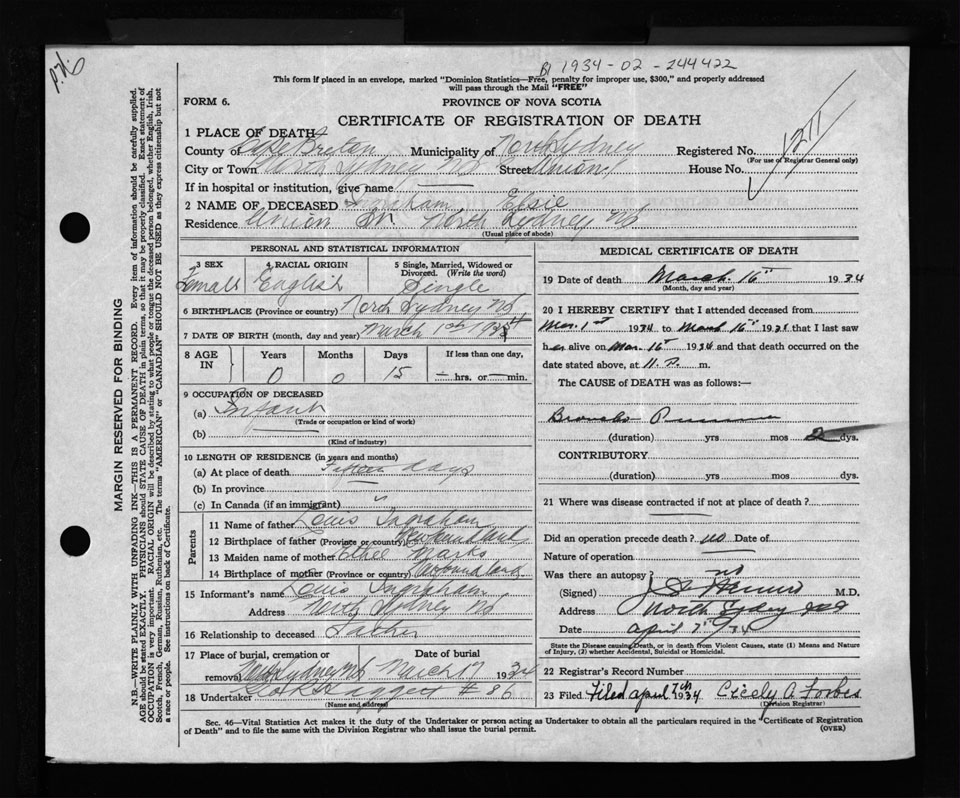 B 1934-02-244422
This form if placed in an envelope, marked "Dominion Statistics—Free, penalty for improper use, $300," and properly addressed
will pass through the Mail "FREE"
FORM 6.
PROVINCE OF NOVA SCOTIA
CERTIFICATE OF REGISTRATION OF DEATH
1 PLACE OF DEATH
County of Cape Breton Municipality of North Sydney Registered No.
(For use of Registrar General only)
City or Town North Sydney N.S. Street Union House No.
If in hospital or institution, give name
2 NAME OF DECEASED Ingraham Elsie
Residence Union St North Sydney NS
(Usual place of abode)
PERSONAL AND STATISTICAL INFORMATION
3 SEX 4 RACIAL ORIGIN 5 Single, Married, Widowed or Divorced. (Write the word)
Female English Single
6 BIRTHPLACE (Province or country) North Sydney NS
7 DATE OF BIRTH (month, day and year) March 1st 1934
8 AGE IN Years Months Days If less than one day,
0 0 15 — hrs. or — min.
9 OCCUPATION OF DECEASED
(a) Infant
(Trade or occupation or kind of work)
(b)
(Kind of industry)
10 LENGTH OF RESIDENCE (in years and months)
(a) At place of death Fifteen days
(b) In province "
(c) In Canada (if an immigrant)
Parents
11 Name of father Louis Ingraham
12 Birthplace of father (Province or country) Newfoundland
13 Maiden name of mother Ethel Marks
14 Birthplace of mother (Province or country) Newfoundland
15 Informant's name Louis Ingraham
Address North Sydney NS
16 Relationship to deceased Father
17 Place of burial, cremation or removal Date of burial
North Sydney NS March 17 1934
18 Undertaker # 86
(Name and address)
MEDICAL CERTIFICATE OF DEATH
19 Date of death March 16th 1934
(Month, day and year)
20 I HEREBY CERTIFY that I attended deceased from
Mar. 1st 1934 to March 16th 1934 that I last saw
her alive on Mar. 16th 1934 and that death occurred on the
date stated above, at 11. P. m.
The CAUSE of DEATH was as follows:—
Broncho Pneumonia
(duration) yrs mos 2 dys.
CONTRIBUTORY
(duration) yrs mos dys.
21 Where was disease contracted if not at place of death?
Did an operation precede death? no Date of
Nature of operation
Was there an autopsy? no
(Signed) M.D.
Address North Sydney NS
Date April 7th/34
State the Disease causing Death, or in death from Violent Causes, state (1) Means and Nature of Injury, (2) whether Accidental, Suicidal or Homicidal.
22 Registrar's Record Number
23 Filed Filed April 7th 1934 Cicely A. Forbes
(Division Registrar)
Sec. 46—Vital Statistics Act makes it the duty of the Undertaker or person acting as Undertaker to obtain all the particulars required in the "Certificate of Registration
of Death" and to file the same with the Division Registrar who shall issue the burial permit.
(OVER)
MARGIN RESERVED FOR BINDING
N.B.—WRITE PLAINLY WITH UNFADING INK—THIS IS A PERMANENT RECORD. Every item of information should be carefully supplied.
AGE should be stated EXACTLY. PHYSICIANS should STATE CAUSE OF DEATH in plain terms, so that it may be properly classified. Exact statement of
OCCUPATION is very important. RACIAL ORIGIN will be described by stating to what people or tongue the deceased person belonged, whether English, Irish,
Scotch, French, German, Russian, Ruthenian, etc. The terms "AMERICAN" or "CANADIAN" SHOULD NOT BE USED as they express citizenship but not
a race or people. See instructions on back of Certificate.